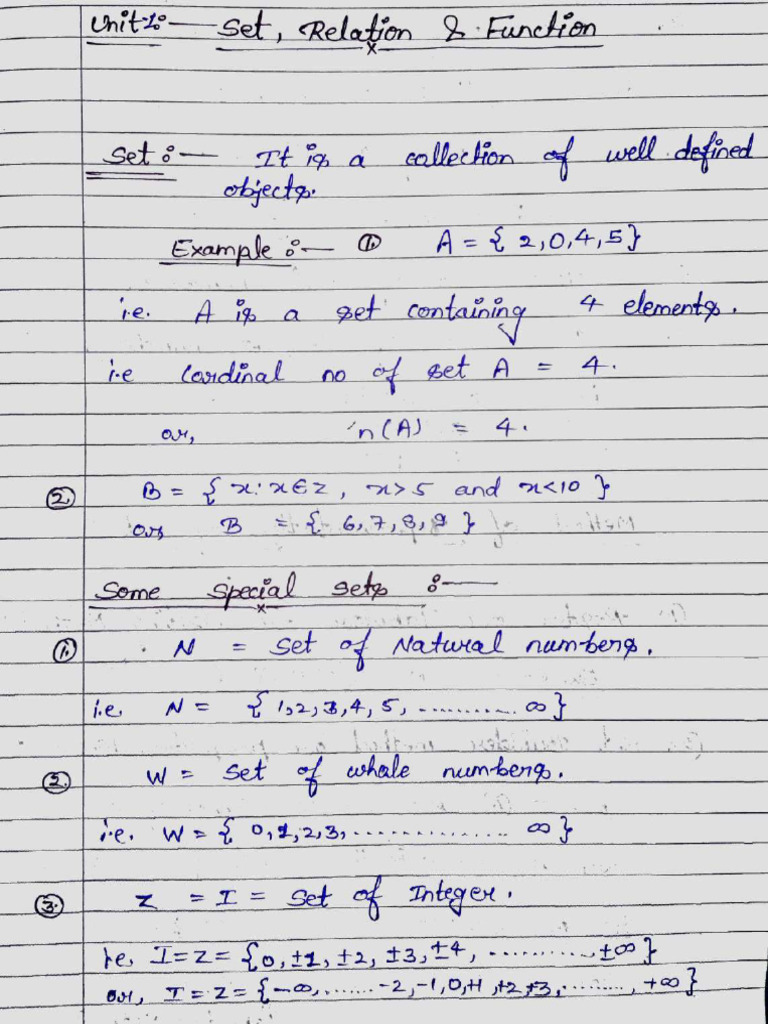 Unit 1:— Set, Relation & Function
Set:— It is a collection of well defined
objects.
Example:— ① A = { 2,0,4,5}
i.e. A is a set containing 4 elements.
i.e Cardinal no of set A = 4.
or, n(A) = 4.
② B = { x: x∈z, x>5 and x<10 }
or B = { 6,7,8,9 }
Some special sets :—
① N = Set of Natural numbers.
i.e. N = { 1,2,3,4,5, .......... ∞}
② W = Set of whole numbers.
i.e. W = { 0,1,2,3, ............... ∞}
③ Z = I = Set of Integer.
i.e, I=Z= {0,±1,±2,±3,±4, .........., ±∞}
or, I=Z= {-∞, ...... -2,-1,0,+1,+2,+3, ........, +∞}